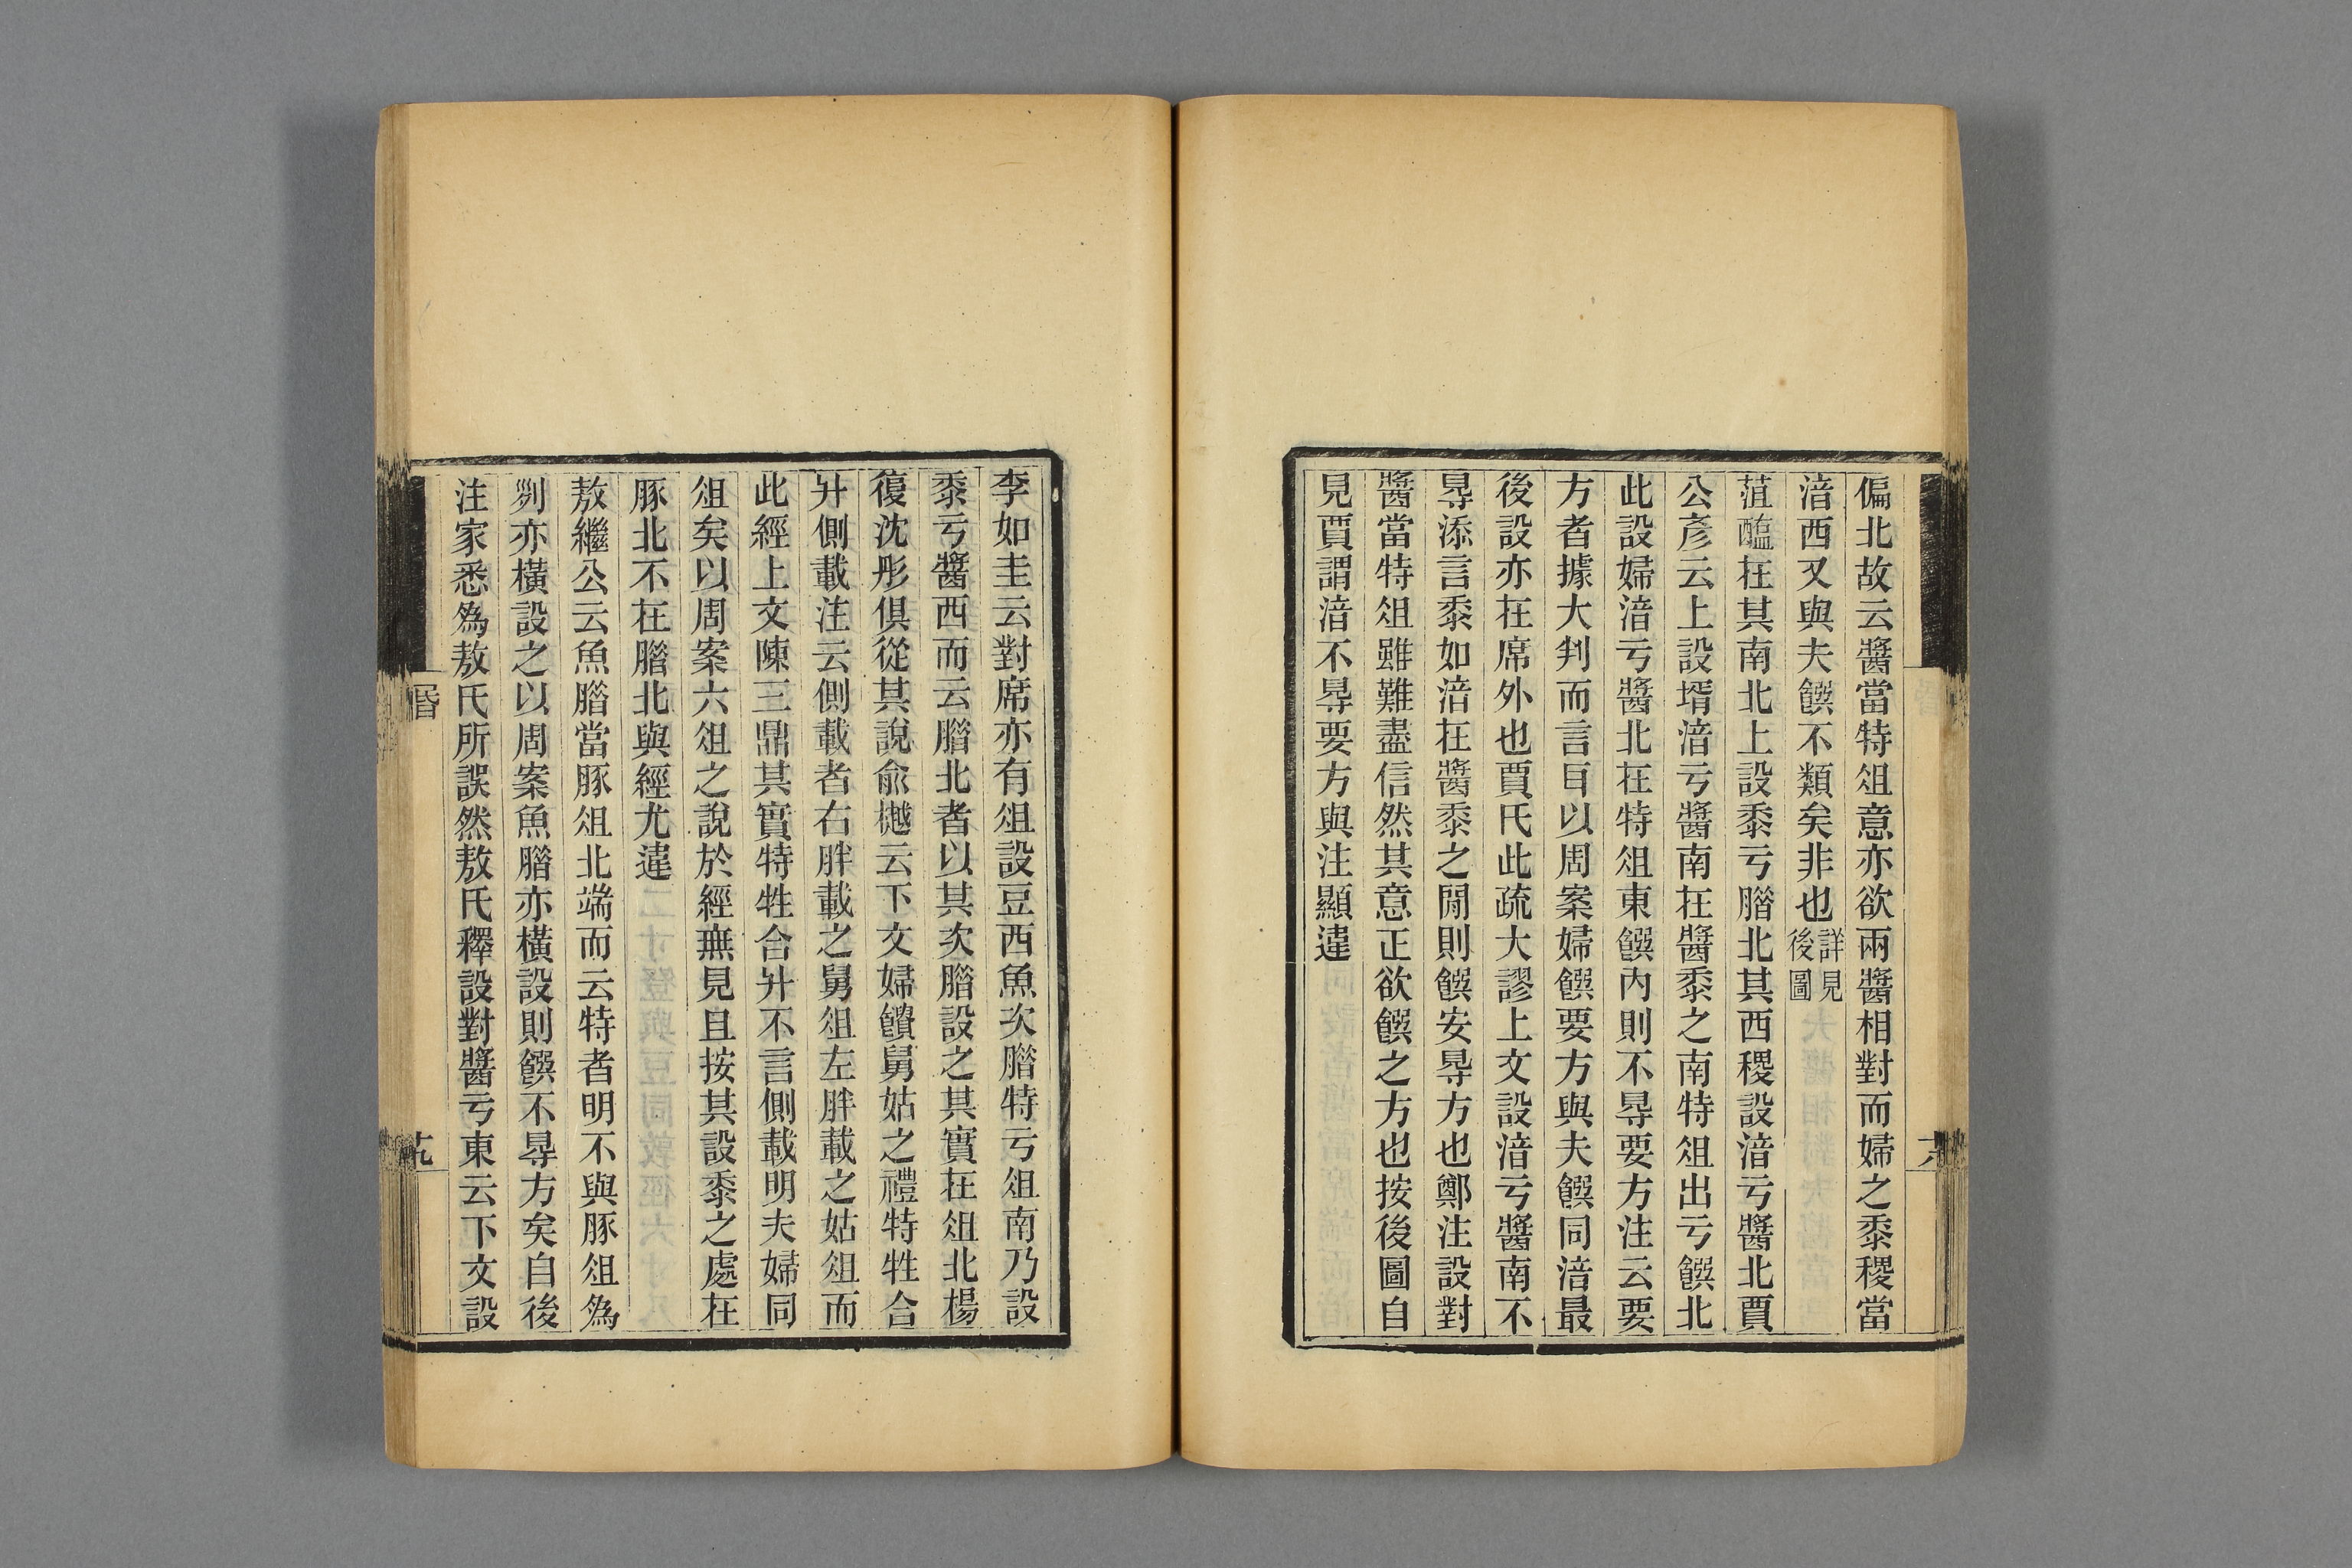 偏北故云醬當特俎意亦欲兩醬相對而婦之黍稷當
湆西又與夫饌不類矣非也詳見後圖
菹醢在其南北上設黍亏腊北其西稷設湆亏醬北賈
公彥云上設壻湆亏醬南在醬黍之南特俎出亏饌北
此設婦湆亏醬北在特俎東饌內則不㝵要方注云要
方者據大判而言耳以周案婦饌要方與夫饌同湆最
後設亦在席外也賈氏此疏大謬上文設湆亏醬南不
㝵添言黍如湆在醬黍之閒則饌安㝵方也鄭注設對
醬當特俎雖難盡信然其意正欲饌之方也按後圖自
見賈謂湆不㝵要方與注顯違
六
李如圭云對席亦有俎設豆西魚次腊特亏俎南乃設
黍亏醬西而云腊北者以其次腊設之其實在俎北楊
復沈彤俱從其說俞樾云下文婦饋舅姑之禮特牲合
升側載注云側載者右胖載之舅俎左胖載之姑俎而
此經上文陳三鼎其實特牲合升不言側載明夫婦同
俎矣以周案六俎之說於經無見且按其設黍之處在
豚北不在腊北與經尤違
敖繼公云魚腊當豚俎北端而云特者明不與豚俎為
列亦橫設之以周案魚腊亦橫設則饌不㝵方矣自後
注家悉為敖氏所誤然敖氏釋設對醬亏東云下文設
昏